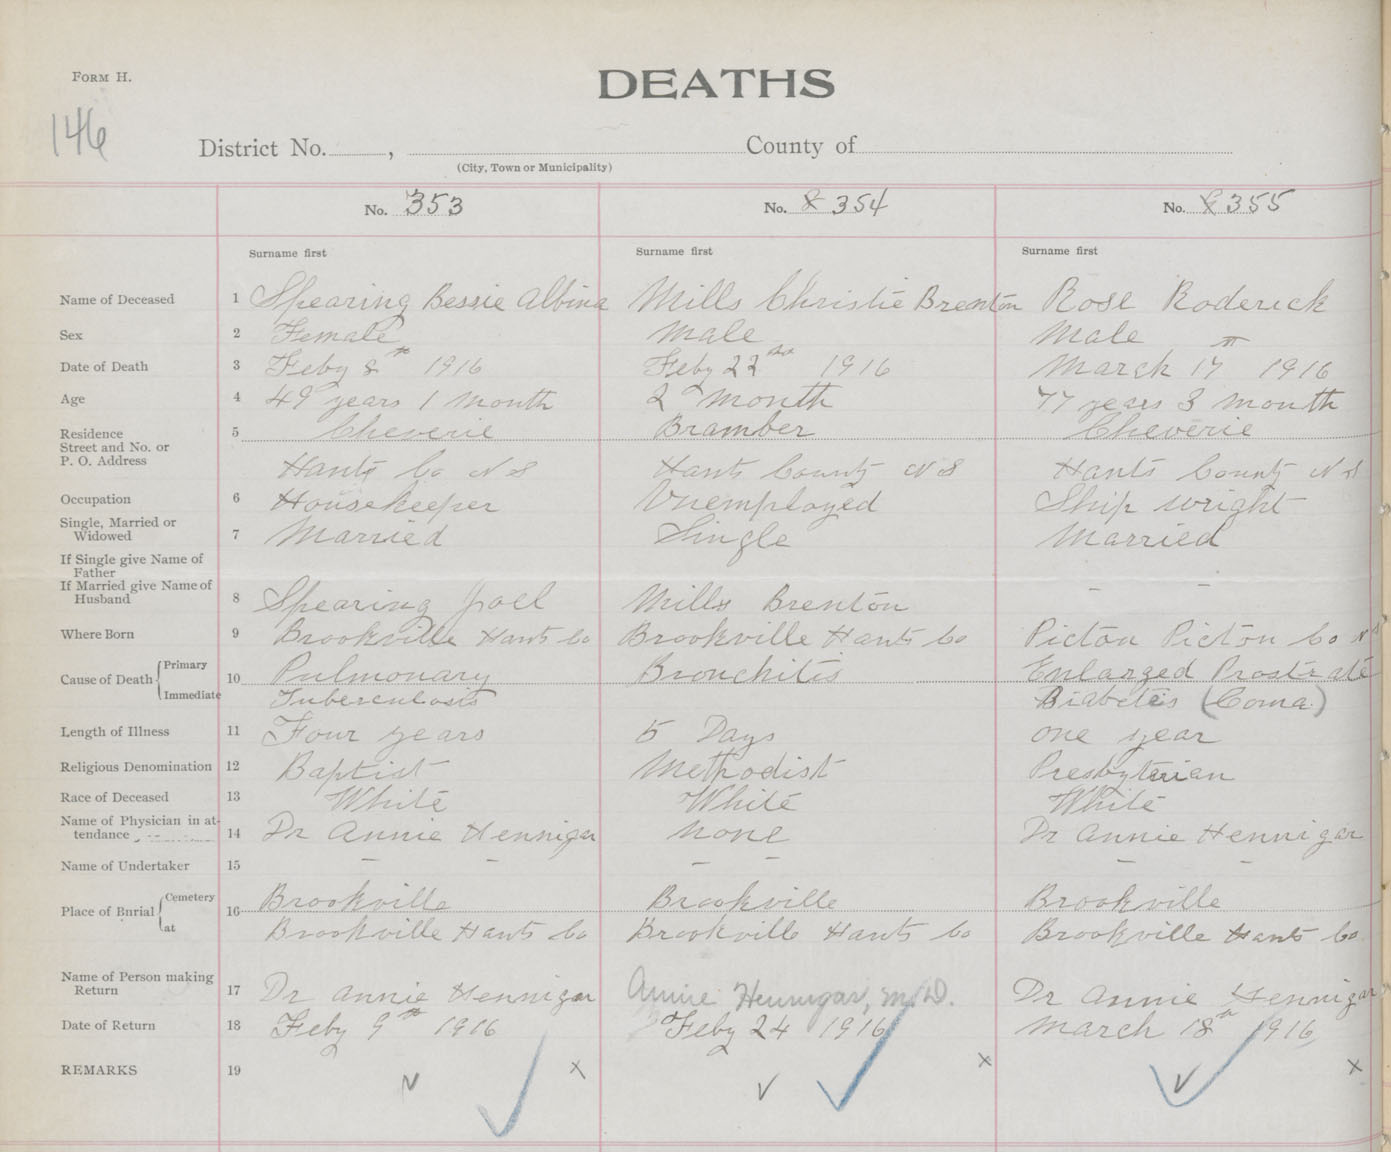 FORM H.
DEATHS
146
District No. , County of
(City, Town or Municipality)
No. 353 No. 354 No. 355
Surname first Surname first Surname first
Name of Deceased 1 Spearing Bessie Albina Mills Christie Brenton Rose Roderick
Sex 2 Female Male Male
Date of Death 3 Feby 8th 1916 Feby 22nd 1916 March 17th 1916
Age 4 49 years 1 month 2 month 77 years 3 month
Residence 5 Cheverie Bramber Cheverie
Street and No. or
P. O. Address Hants Co N S Hants County N S Hants County N S
Occupation 6 Housekeeper Unemployed Ship wright
Single, Married or
Widowed 7 Married Single Married
If Single give Name of
Father
If Married give Name of
Husband 8 Spearing Joel Mills Brenton - -
Where Born 9 Brookville Hants Co Brookville Hants Co Pictou Pictou Co N S
Cause of Death Primary 10 Pulmonary Bronchitis Enlarged Prostrate
Immediate Tuberculosis Diabetes (Coma)
Length of Illness 11 Four years 5 Days one year
Religious Denomination 12 Baptist Methodist Presbyterian
Race of Deceased 13 White White White
Name of Physician in at-
tendance 14 Dr Annie Hennigar None Dr Annie Hennigar
Name of Undertaker 15 - - - - - -
Place of Burial Cemetery 16 Brookville Brookville Brookville
at Brookville Hants Co Brookville Hants Co Brookville Hants Co
Name of Person making
Return 17 Dr Annie Hennigar Annie Hennigar, M.D. Dr Annie Hennigar
Date of Return 18 Feby 9th 1916 Feby 24 1916 March 18th 1916
REMARKS 19 x x x